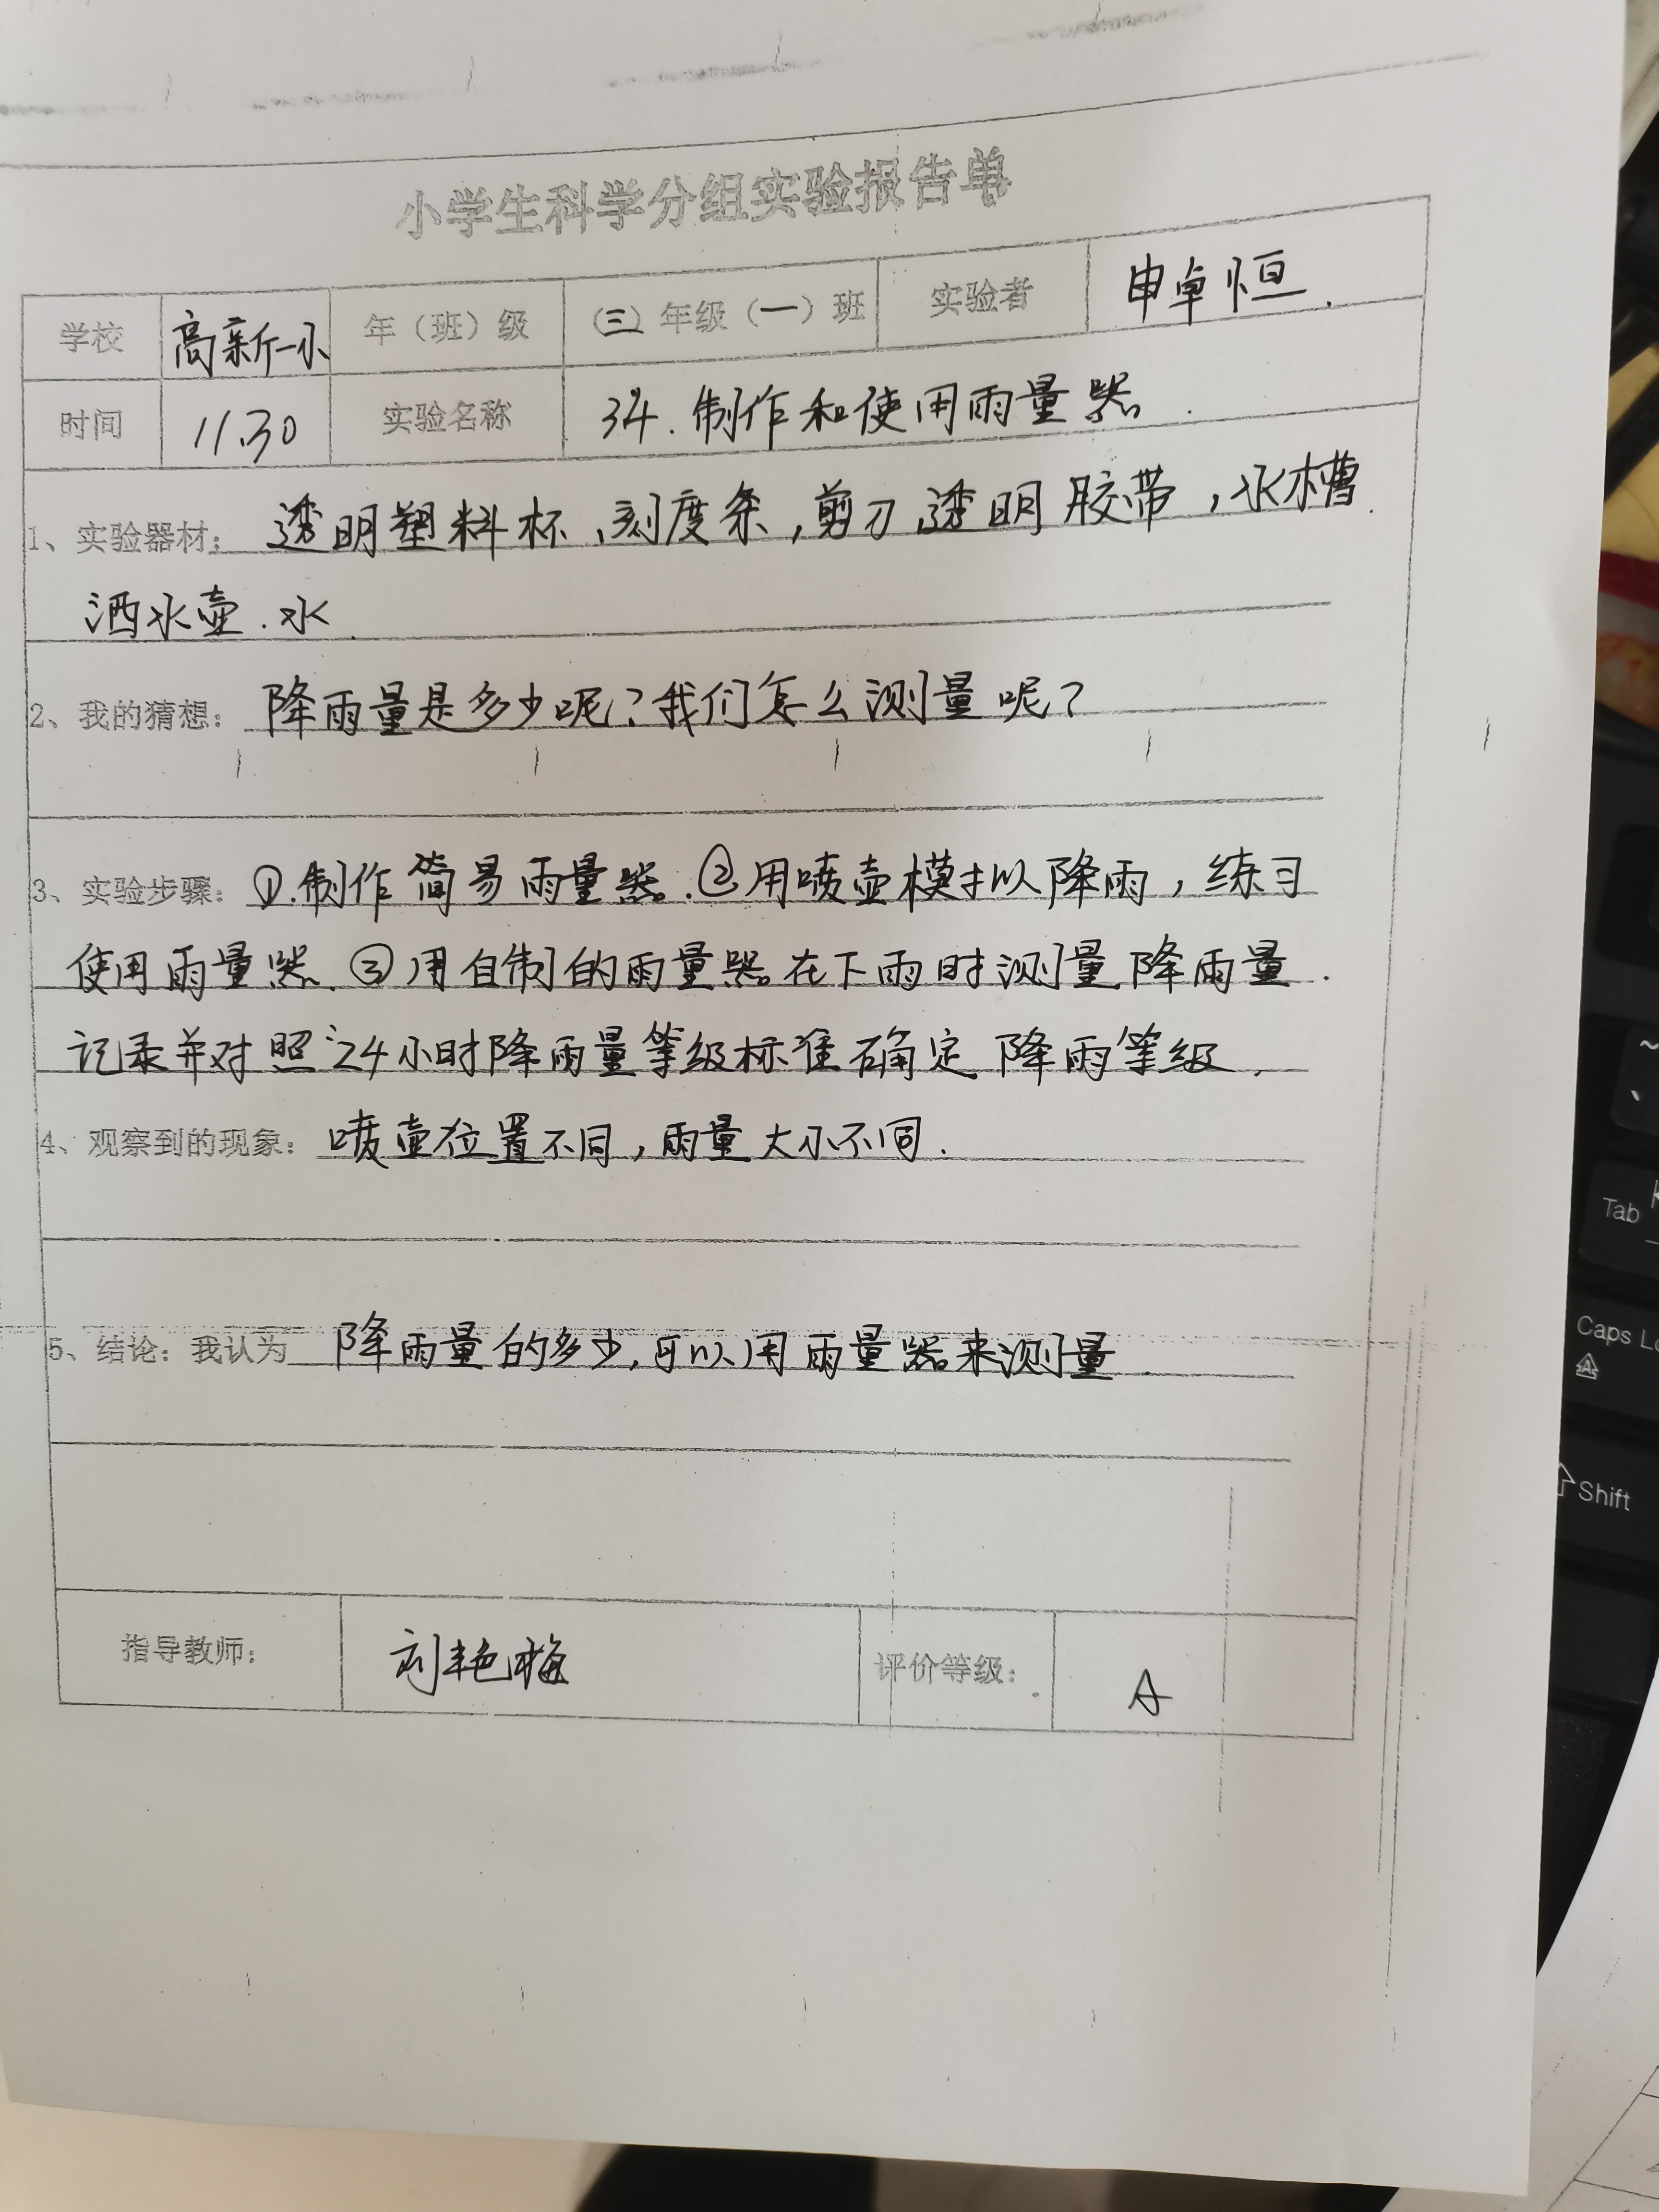 小学生科学分组实验报告单
学校 高新一小 年（班）级 （三）年级（一）班 实验者 申卓恒.
时间 11.30 实验名称 34.制作和使用雨量器.
1、实验器材：透明塑料杯、刻度条，剪刀，透明胶带，水槽.
洒水壶.水.
2、我的猜想：降雨量是多少呢？我们怎么测量呢？
3、实验步骤：①.制作简易雨量器.②用喷壶模拟降雨，练习
使用雨量器.③用自制的雨量器在下雨时测量降雨量.
记录并对照24小时降雨量等级标准确定降雨等级.
4、观察到的现象：喷壶位置不同，雨量大小不同.
5、结论：我认为 降雨量的多少，可以用雨量器来测量.
指导教师： 刘艳梅 评价等级： A
Tab
Caps Lo
Shift